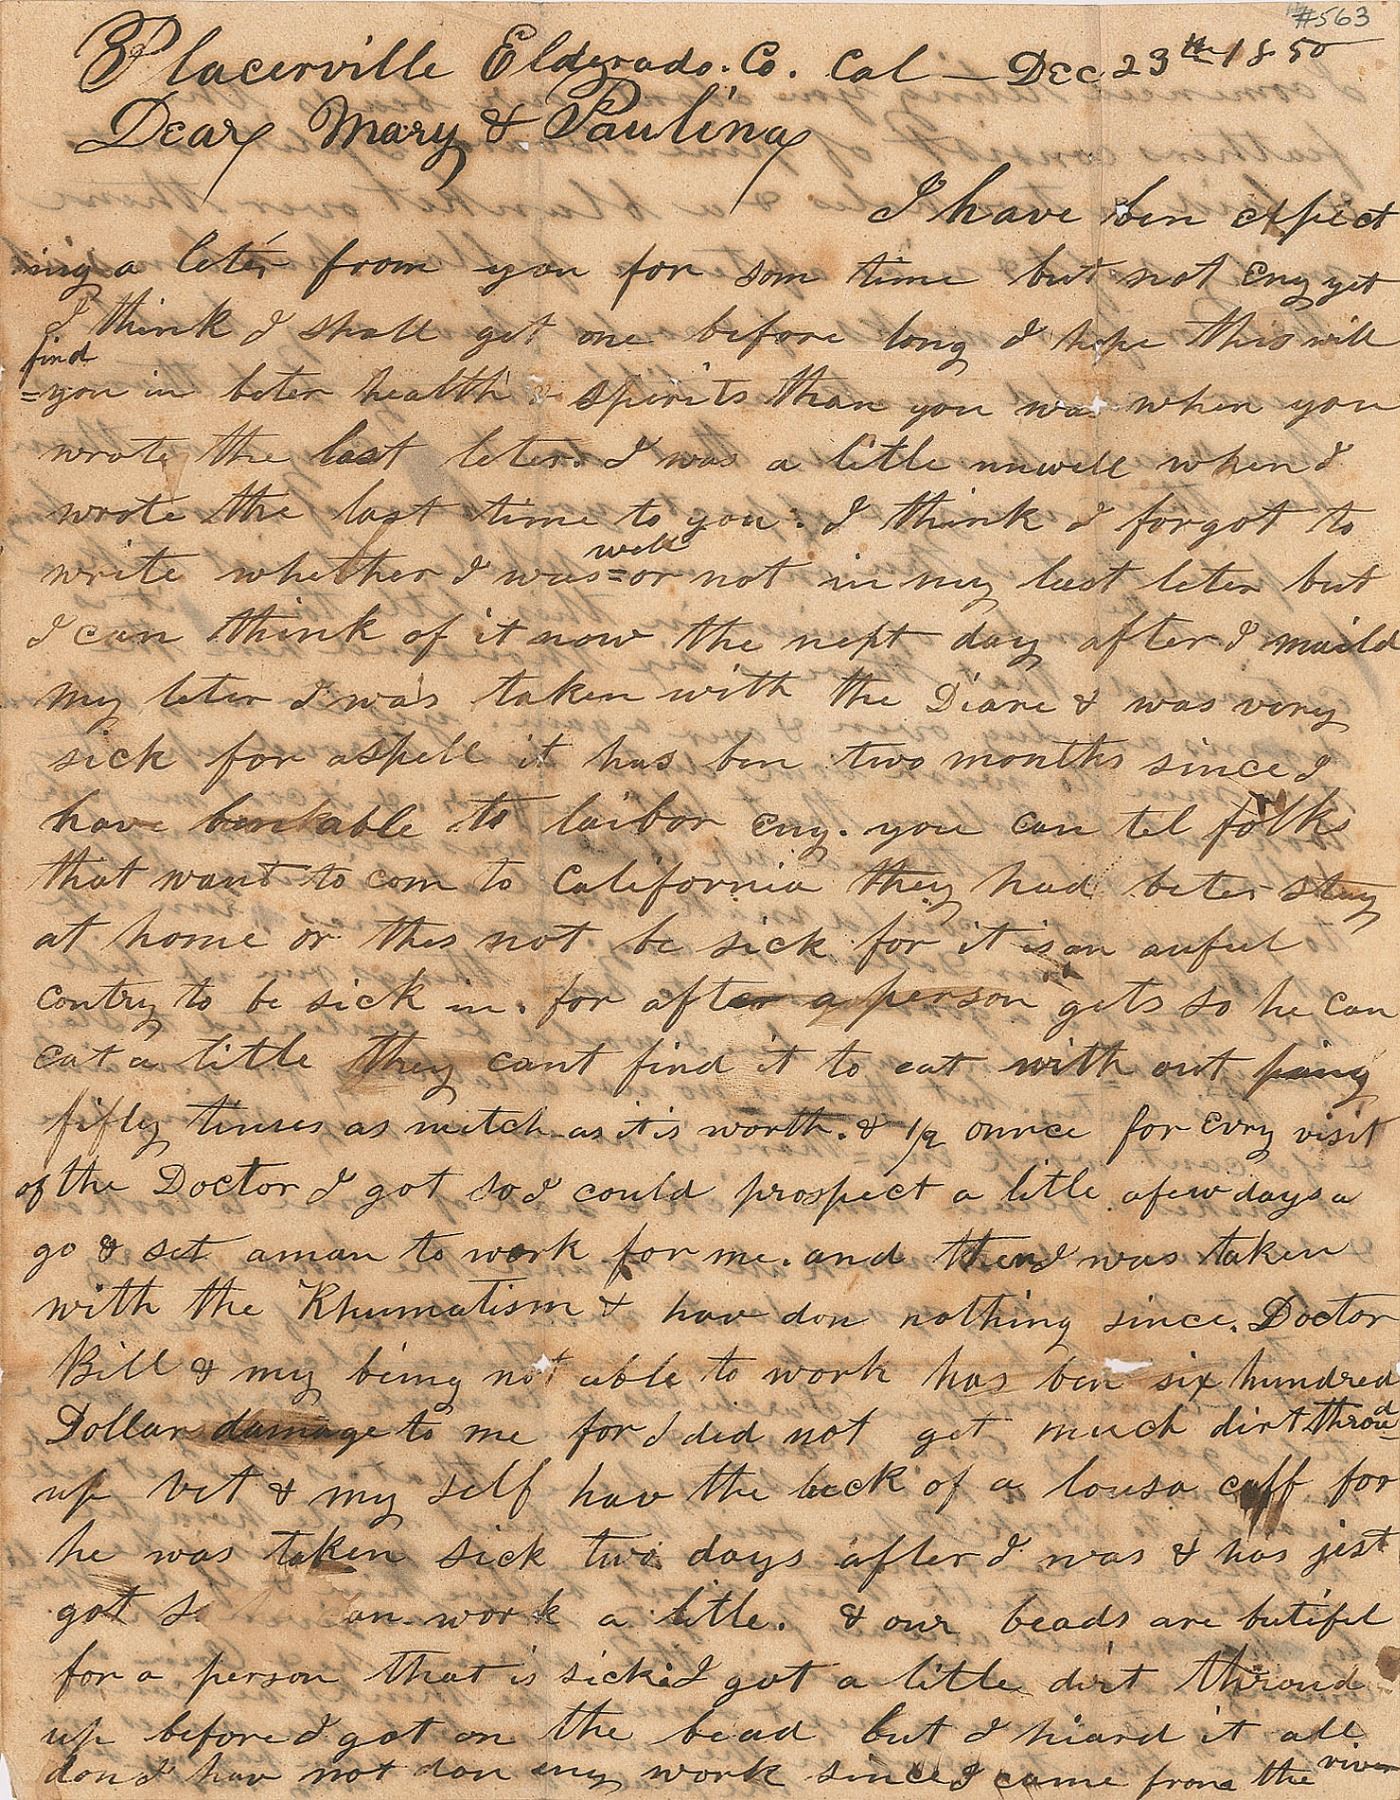 #563
Placerville Eldorado. Co. Cal — Dec 23th 1850
Dear Mary & Paulina
I have ben expect
ing a leter from you for som time but not eny yet
I think I shall get one before long I hope this will
find
=you in beter health & spirits than you was when you
wrote the last leter. I was a litle unwell when I
wrote the last time to you. I think I forgot to
well
write whether I was=or not in my last leter but
I can think of it now the next day after I maild
my leter I was taken with the Diare & was very
sick for aspell it has ben two months since I
have ben able to laibor eny. you can tel folks
that want to com to California they had beter stay
at home or thes not be sick for it is an auful
contry to be sick in. for after a person gets so he can
eat a little they cant find it to eat with out paing
fifty times as mutch as it is worth. & 1/2 ounce for evry visit
of the Doctor I got so I could prospect a litle afew days a
go & set aman to work for me. and then I was taken
with the Rhumatism & hav don nothing since. Doctor
Bill & my being not able to work has ben six hundred
Dollar damage to me for I did not get much dirt throud
up Vet & my self hav the luck of a lousa caff for
he was taken sick two days after I was & has jest
got s an work a litle. & our beads are butiful
for a person that is sick. I got a little dirt throud
up before I got on the bead but I hiard it all
don I hav not don eny work since I came from the river